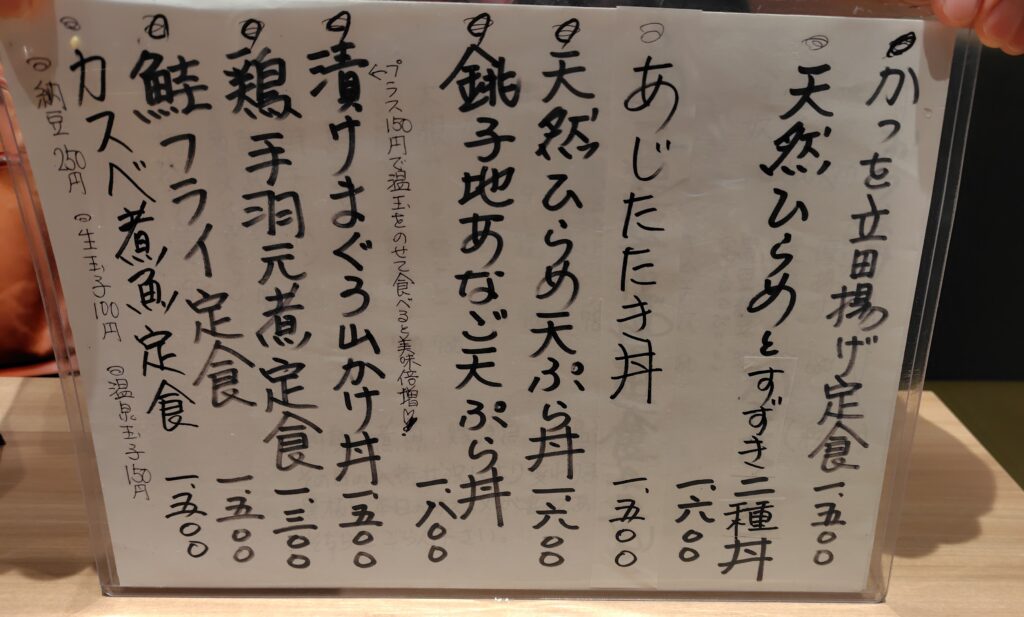 かつを立田揚げ定食 一、五〇〇
天然ひらめとすずき二種丼 一、六〇〇
あじたたき丼 一、五〇〇
天然ひらめ天ぷら丼 一、六〇〇
銚子地あなご天ぷら丼 一、八〇〇
プラス150円で温玉をのせて食べると美味倍増♡
漬けまぐろ山かけ丼 一、五〇〇
鶏手羽元煮定食 一、三〇〇
鮭フライ定食 一、五〇〇
カスベ煮魚定食 一、五〇〇
納豆 250円 生玉子100円 温泉玉子150円